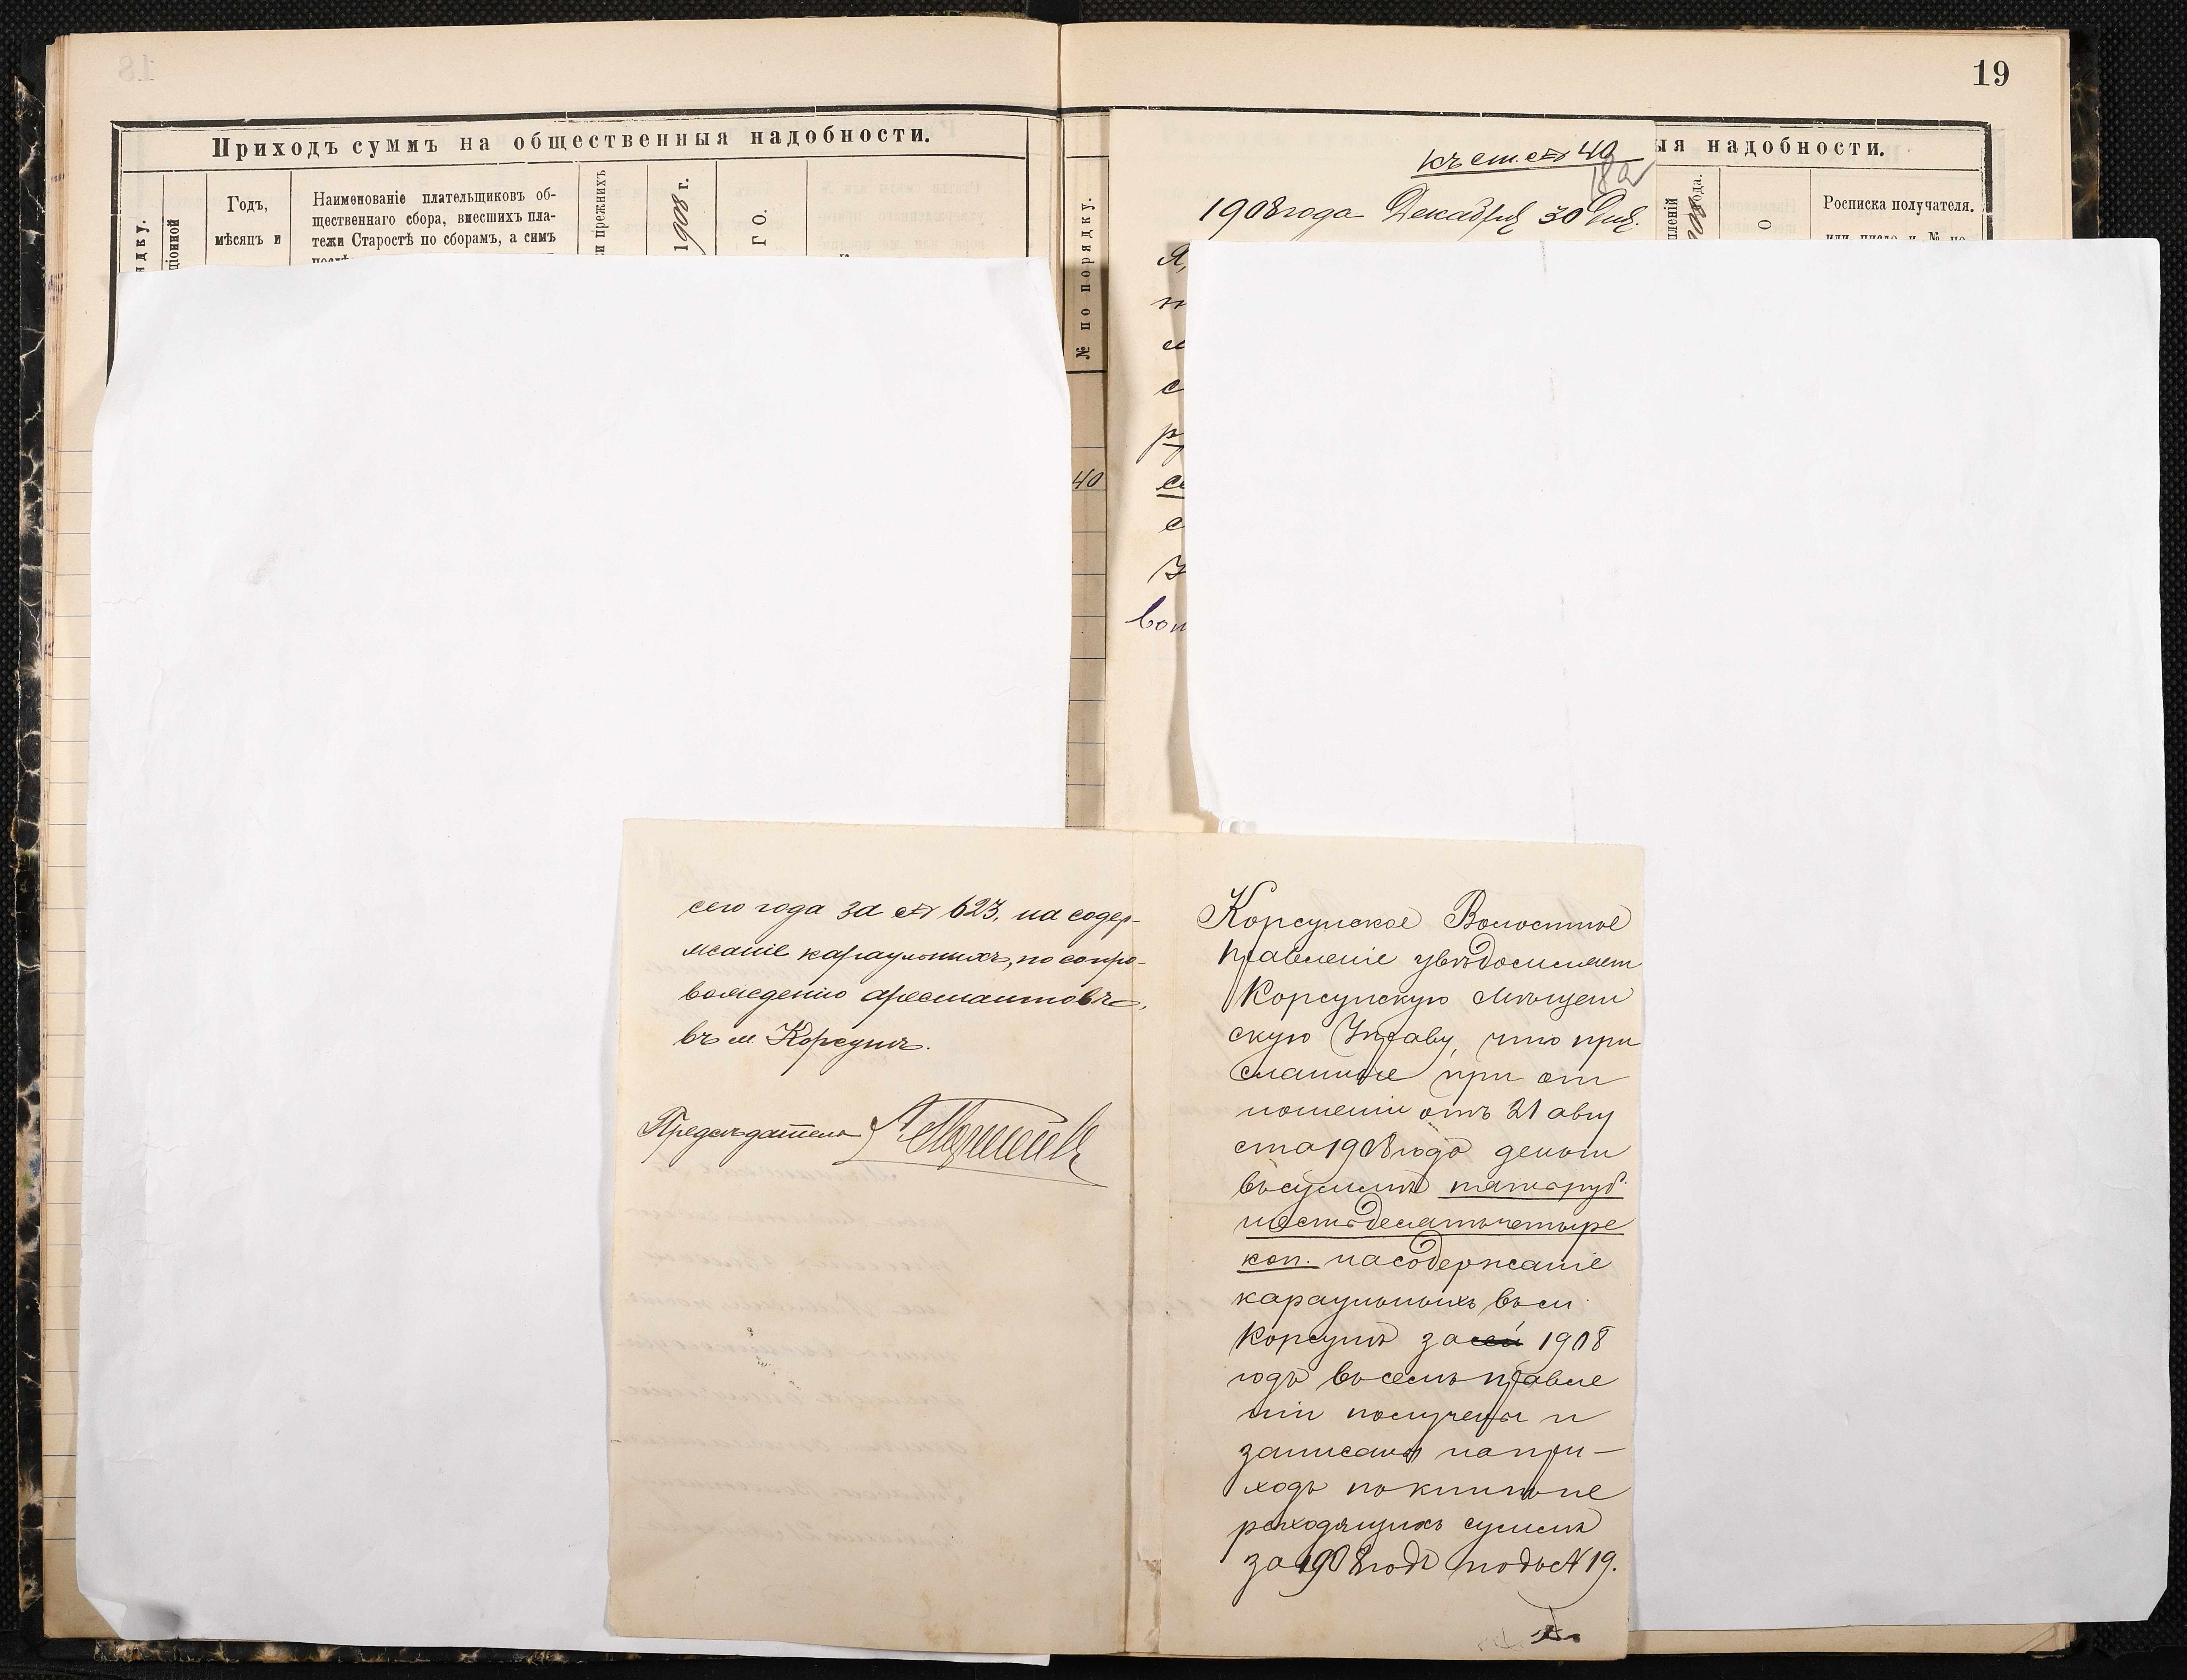 19
Приходъ суммъ на общественныя надобности.
Годъ,
мѣсяцъ и
Наименованіе плательщиковъ об-
щественнаго сбора, внесшихъ пла-
тежи Старостѣ по сборамъ, а симъ
и прежнихъ
1908 г.
ГО.
№ по порядку.
40
къ ст. № 40
18а
1908 года Декабря 30 дня.
Я,
вои
ыя надобности.
Росписка получателя.
сего года за № 623, на содер-
жаніе караульныхъ, по сопро-
вожденію арестантовъ,
въ м Корсунь.
Предсѣдатель
Корсунское Волостное
Правленіе увѣдомляет
Корсунскую Мѣщан
скую Управу, что при
сланные при от
ношеніи отъ 21 авгу
ста 1908 года деньги
въ суммѣ пять руб.
шестьдесятъ четыре
коп. на содержаніе
караульныхъ въ м.
Корсунѣ за сей 1908
годъ въ семъ правле
ніи получены и
записаны на при-
ходъ по книгѣ пе
реходящихъ суммъ
за 1908 годъ подъ № 19.